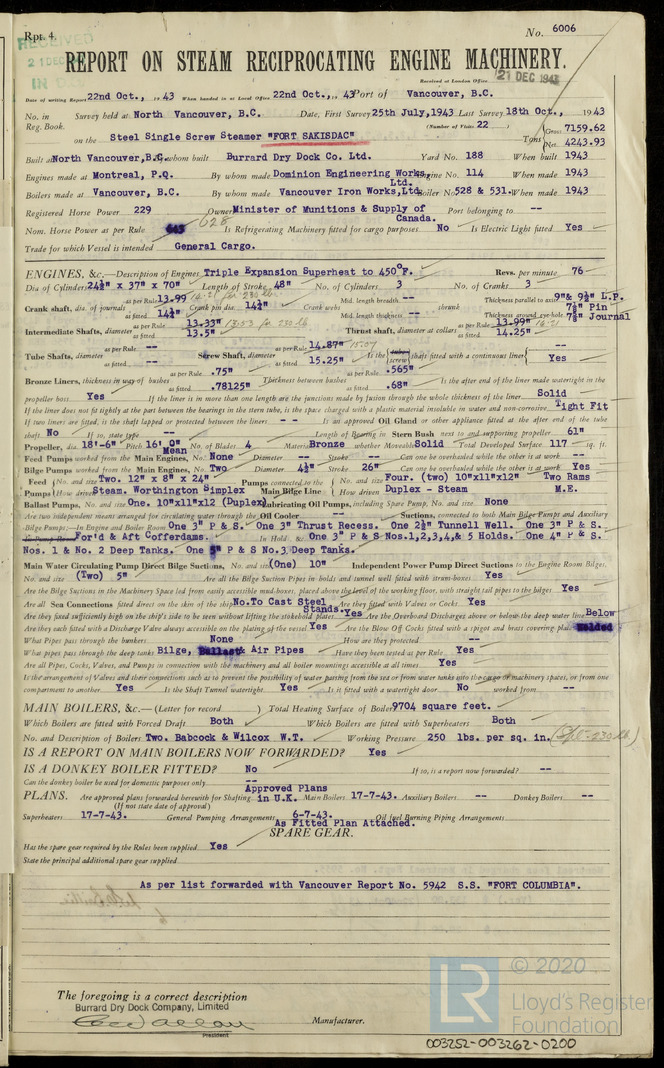 Rpt. 4. No. 6006
RECEIVED
21 DEC
REPORT ON STEAM RECIPROCATING ENGINE MACHINERY.
Received at London Office 21 DEC 1943
Date of writing Report 22nd Oct., 1943 When handed in at Local Office 22nd Oct., 1943 Port of Vancouver, B.C.
No. in Survey held at North Vancouver, B.C. Date, First Survey 25th July, 1943 Last Survey 18th Oct., 1943
Reg. Book. (Number of Visits 22)
on the Steel Single Screw Steamer "FORT SAKISDAC" Tons Gross 7159.62 Net 4243.93
Built at North Vancouver, B.C. By whom built Burrard Dry Dock Co. Ltd. Yard No. 188 When built 1943
Engines made at Montreal, P.Q. By whom made Dominion Engineering Works, Ltd. Engine No. 114 When made 1943
Boilers made at Vancouver, B.C. By whom made Vancouver Iron Works, Ltd. Boiler No. 528 & 531. When made 1943
Registered Horse Power 229 Owner Minister of Munitions & Supply of Canada. Port belonging to --
Nom. Horse Power as per Rule 643 628 Is Refrigerating Machinery fitted for cargo purposes No Is Electric Light fitted Yes
Trade for which Vessel is intended General Cargo.
ENGINES, &c.—Description of Engines Triple Expansion Superheat to 450°F. Revs. per minute 76
Dia of Cylinders 24½" x 37" x 70" Length of Stroke 48" No. of Cylinders 3 No. of Cranks 3
Crank shaft, dia. of journals as per Rule 13.99 14.21 for 230 lb. as fitted 14¼" Crank pin dia. 14¼" Crank webs Mid. length breadth -- Mid. length thickness -- shrunk Thickness parallel to axis 9" & 9½" L.P. Thickness around eye-hole 7⅜" Pin 7⅜" Journal
Intermediate Shafts, diameter as per Rule 13.33" 13.53 for 230 lb as fitted 13.5" Thrust shaft, diameter at collars as per Rule 13.99" 14.21 as fitted 14.25"
Tube Shafts, diameter as per Rule -- as fitted -- Screw Shaft, diameter as per Rule 14.87" 15.07 as fitted 15.25" Is the {tube screw} shaft fitted with a continuous liner { -- Yes
Bronze Liners, thickness in way of bushes as per Rule .75" as fitted .78125" Thickness between bushes as per Rule .565" as fitted .68" Is the after end of the liner made watertight in the
propeller boss Yes If the liner is in more than one length are the junctions made by fusion through the whole thickness of the liner Solid
If the liner does not fit tightly at the part between the bearings in the stern tube, is the space charged with a plastic material insoluble in water and non-corrosive Tight Fit
If two liners are fitted, is the shaft lapped or protected between the liners -- Is an approved Oil Gland or other appliance fitted at the after end of the tube
shaft No If so, state type -- Length of Bearing in Stern Bush next to and supporting propeller 61"
Propeller, dia. 18'-6" Pitch 16'.0" Mean No. of Blades 4 Material Bronze whether Moveable Solid Total Developed Surface 117 sq. ft.
Feed Pumps worked from the Main Engines, No. None Diameter -- Stroke -- Can one be overhauled while the other is at work --
Bilge Pumps worked from the Main Engines, No. Two Diameter 4½" Stroke 26" Can one be overhauled while the other is at work Yes
Feed Pumps No. and size Two. 12" x 8" x 24" How driven Steam. Worthington Simplex Pumps connected to the Main Bilge Line No. and size Four. (two) 10"x11"x12" Two Rams How driven Duplex - Steam M.E.
Ballast Pumps, No. and size One. 10"x11"x12 (Duplex) Lubricating Oil Pumps, including Spare Pump, No. and size None
Are two independent means arranged for circulating water through the Oil Cooler -- Suctions, connected to both Main Bilge Pumps and Auxiliary
Bilge Pumps;—In Engine and Boiler Room One 3" P & S. One 3" Thrust Recess. One 2½" Tunnell Well. One 3" P & S.
In Pump Room For'd & Aft Cofferdams. In Hold &c. One 3" P & S Nos.1,2,3,4,& 5 Holds. One 4" P & S.
Nos. 1 & No. 2 Deep Tanks. One 5" P & S No.3 Deep Tanks.
Main Water Circulating Pump Direct Bilge Suctions, No. and size (One) 10" Independent Power Pump Direct Suctions to the Engine Room Bilges,
No. and size (Two) 5" Are all the Bilge Suction Pipes in holds and tunnel well fitted with strum-boxes Yes
Are the Bilge Suctions in the Machinery Space led from easily accessible mud-boxes, placed above the level of the working floor, with straight tail pipes to the bilges Yes
Are all Sea Connections fitted direct on the skin of the ship No. To Cast Steel Stands. Are they fitted with Valves or Cocks Yes
Are they fixed sufficiently high on the ship's side to be seen without lifting the stokehold plates Yes Are the Overboard Discharges above or below the deep water line Below
Are they each fitted with a Discharge Valve always accessible on the plating of the vessel Yes Are the Blow Off Cocks fitted with a spigot and brass covering plate Welded
What Pipes pass through the bunkers None How are they protected --
What pipes pass through the deep tanks Bilge, Ballast & Air Pipes Have they been tested as per Rule Yes
Are all Pipes, Cocks, Valves, and Pumps in connection with the machinery and all boiler mountings accessible at all times Yes
Is the arrangement of Valves and their connections such as to prevent the possibility of water passing from the sea or from water tanks into the cargo or machinery spaces, or from one
compartment to another Yes Is the Shaft Tunnel watertight Yes Is it fitted with a watertight door No worked from --
MAIN BOILERS, &c.—(Letter for record ) Total Heating Surface of Boilers 9704 square feet.
Which Boilers are fitted with Forced Draft Both Which Boilers are fitted with Superheaters Both
No. and Description of Boilers Two. Babcock & Wilcox W.T. Working Pressure 250 lbs. per sq. in.
IS A REPORT ON MAIN BOILERS NOW FORWARDED? Yes
IS A DONKEY BOILER FITTED? No If so, is a report now forwarded? --
Can the donkey boiler be used for domestic purposes only --
PLANS. Are approved plans forwarded herewith for Shafting Approved Plans in U.K. Main Boilers 17-7-43. Auxiliary Boilers -- Donkey Boilers --
(If not state date of approval)
Superheaters 17-7-43. General Pumping Arrangements 6-7-43. As Fitted Plan Attached. Oil fuel Burning Piping Arrangements
SPARE GEAR.
Has the spare gear required by the Rules been supplied Yes
State the principal additional spare gear supplied
As per list forwarded with Vancouver Report No. 5942 S.S. "FORT COLUMBIA".
The foregoing is a correct description
Burrard Dry Dock Company, Limited
Manufacturer.
President
© 2020
LR Lloyd's Register Foundation
003252-003262-0200